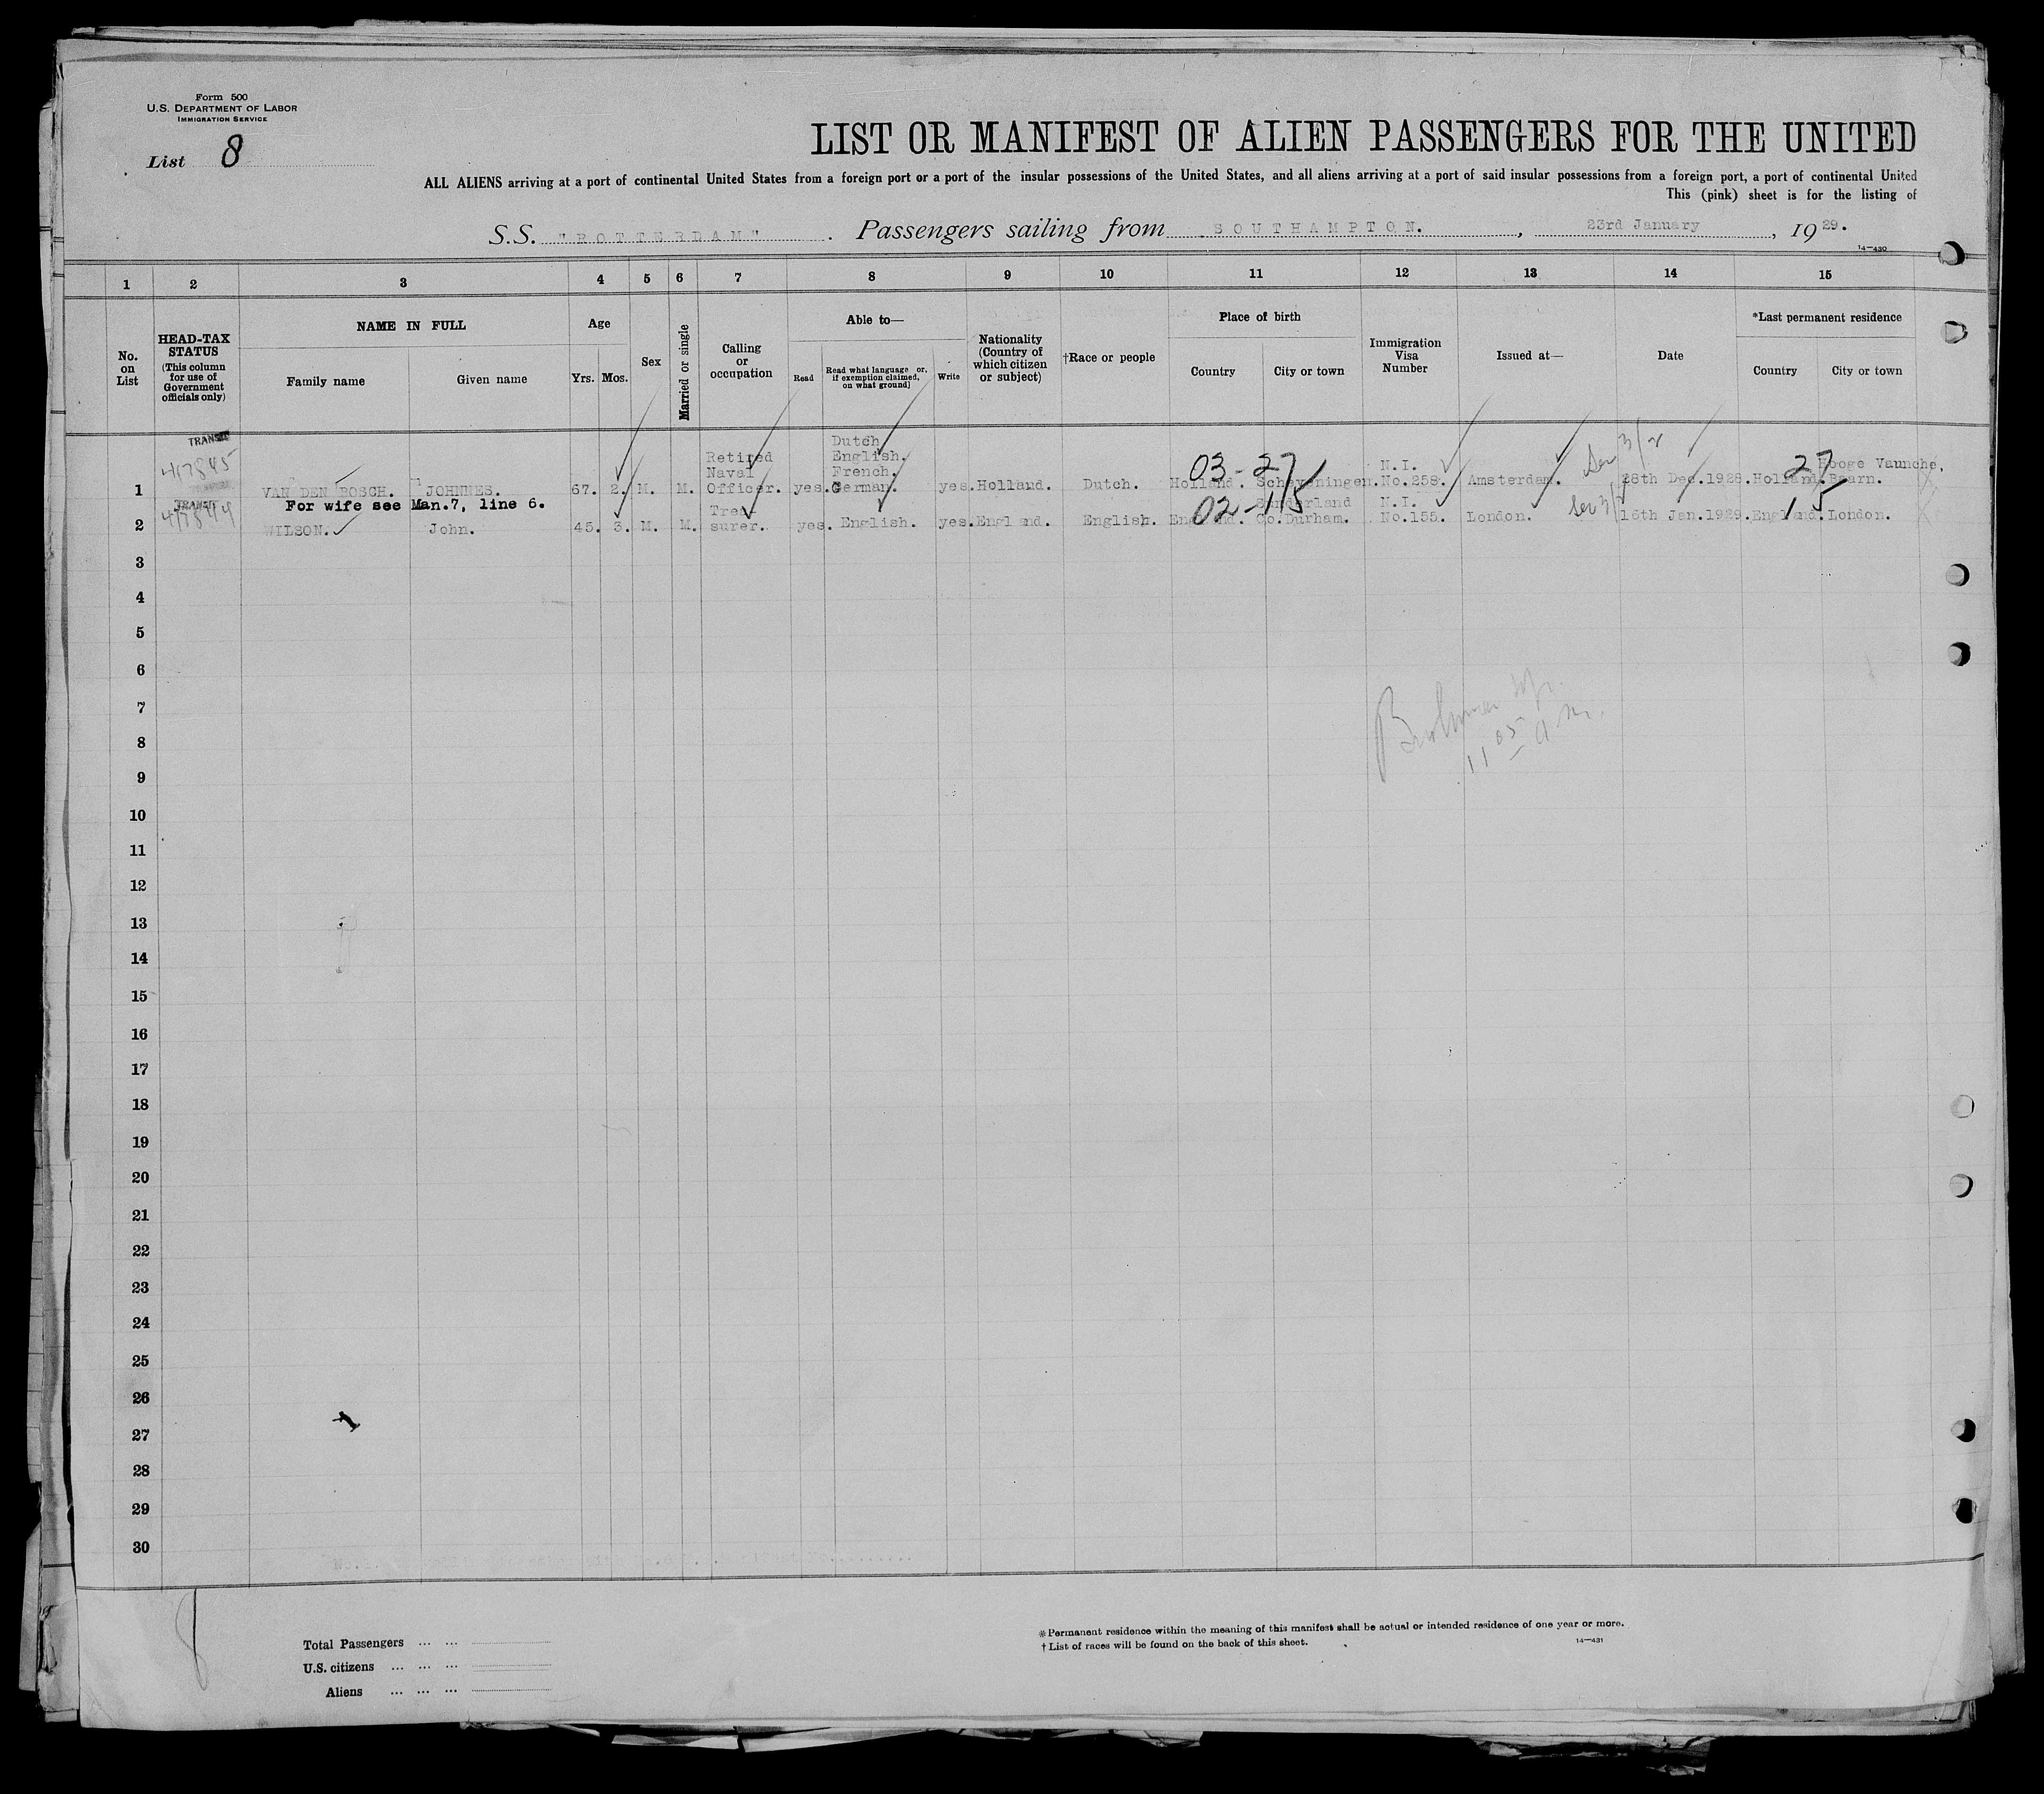 Form 500
U.S. DEPARTMENT OF LABOR
IMMIGRATION SERVICE
List 8
LIST OR MANIFEST OF ALIEN PASSENGERS FOR THE UNITED
ALL ALIENS arriving at a port of continental United States from a foreign port or a port of the insular possessions of the United States, and all aliens arriving at a port of said insular possessions from a foreign port, a port of continental United
This (pink) sheet is for the listing of
S.S. "ROTTERDAM". Passengers sailing from SOUTHAMPTON., 23rd January, 1929.
14—430
1 2 3 4 5 6 7 8 9 10 11 12 13 14 15
No. on List
HEAD-TAX STATUS
(This column for use of Government officials only)
NAME IN FULL
Family name Given name
Age
Yrs. Mos.
Sex
Married or single
Calling or occupation
Able to—
Read
Read what language or, if exemption claimed, on what ground
Write
Nationality (Country of which citizen or subject)
†Race or people
Place of birth
Country City or town
Immigration Visa Number
Issued at—
Date
*Last permanent residence
Country City or town
TRANSIT
417845
1 VAN DEN BOSCH. JOHNNES. 67. 2. M. M. Retired Naval Officer. yes. Dutch English. French. German. yes. Holland. Dutch. Holland. Scheveningen. N.I. No.258. Amsterdam. 28th Dec.1928. Holland. Hooge Vaunche, Baarn.
03-27 27
For wife see Man.7, line 6.
TRANSIT
2 WILSON. John. 45. 3. M. M. Trea surer. yes. English. yes. England. English. England. Sunderland Co.Durham. N.I. No.155. London. 16th Jan.1929. England. London.
02-15 15
3
4
5
6
7
8
9
10
11
12
13
14
15
16
17
18
19
20
21
22
23
24
25
26
27
28
29
30
11 05 a m.
Total Passengers ... ...
U.S. citizens ... ... ...
Aliens ... ... ...
*Permanent residence within the meaning of this manifest shall be actual or intended residence of one year or more.
†List of races will be found on the back of this sheet.
14—431